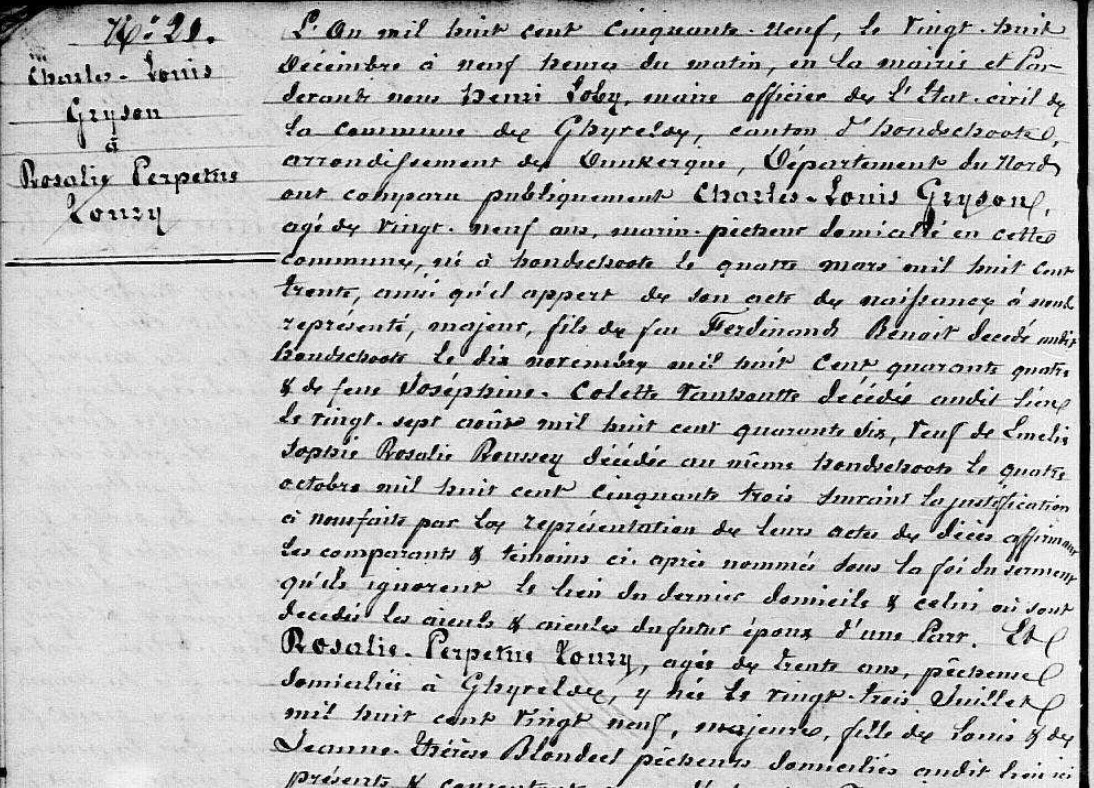 N.° 21.
Charles-Louis
Gryson
à
Rosalie Perpetue
Loury
L'An mil huit cent cinquante-neuf, le vingt-huit
Décembre à neuf heures du matin, en la mairie et Par
devant nous Henri Loby, maire officier de l'Etat-civil de
la commune de Ghyvelde, canton d'hondschoote,
arrondissement de Dunkerque, Département du Nord
ont comparu publiquement Charles-Louis Gryson,
agé de vingt-neuf ans, marin-pêcheur domicilié en cette
commune, né à hondschoote le quatre mars mil huit cent
trente, ainsi qu'il appert de son acte de naissance à nous
représenté, majeur, fils de feu Ferdinand Benoit decédé audit
hondschoote le dix novembre mil huit cent quarante quatre
& de feue Joséphine-Colette Vanhoutte décédée audit lieu
le vingt-sept août mil huit cent quarante six, veuf de Emelie
Sophie Rosalie Roussey décédée au même hondschoote le quatre
octobre mil huit cent cinquante trois suivant la justification
à nous faite par la représentation de leurs actes de décès affirmant
les comparants & témoins ci-après nommés sous la foi du serment
qu'ils ignorent le lieu du dernier domicile & celui où sont
decédés les aieuls & aieules du futur époux d'une Part. Et
Rosalie-Perpetue Loury, agée de trente ans, pêcheuse
domiciliée à Ghyvelde, y née le vingt-trois Juillet
mil huit cent vingt neuf, majeure, fille de Louis & de
Jeanne-thérèse Blondeel pêcheurs domiciliés audit lieu ici
présents & consentants